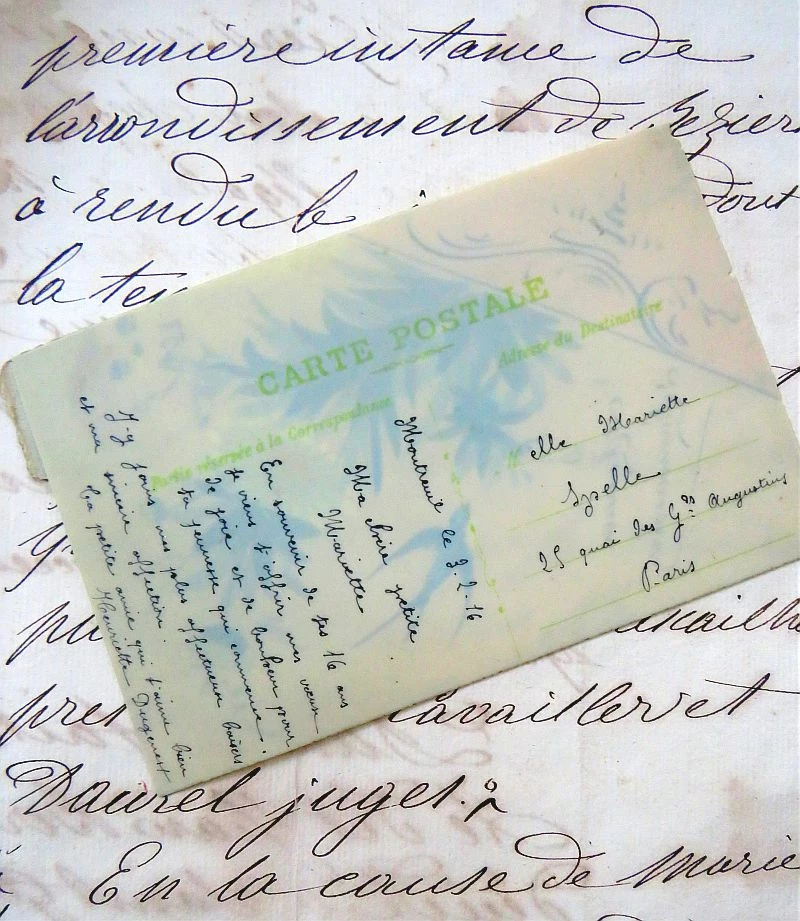 première instance de
l'arrondissement de Bezier
à rendu le
dont
la te
CARTE POSTALE
Partie réservée à la Correspondance
Adresse du Destinataire
Montreuil le 3.2.16
Ma chère petite
Mariette
En souvenir de tes 16 ans
je viens t'offrir mes vœux
de joie et de bonheur pour
ta jeunesse qui commence.
J-y joins mes plus affectueux baisers
et ma sincère affection.
La petite amie qui t'aime bien
Henriette
Melle Mariette
Ispelle
25 quai des Gds Augustins
Paris
pu
availle
pres
travailler et
Daurel juges.
En la cause de Marie